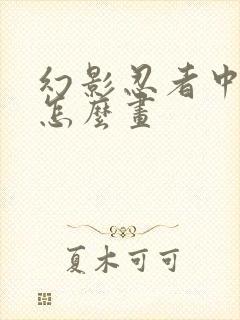 幻影忍者中
怎麼畫
夏木可可